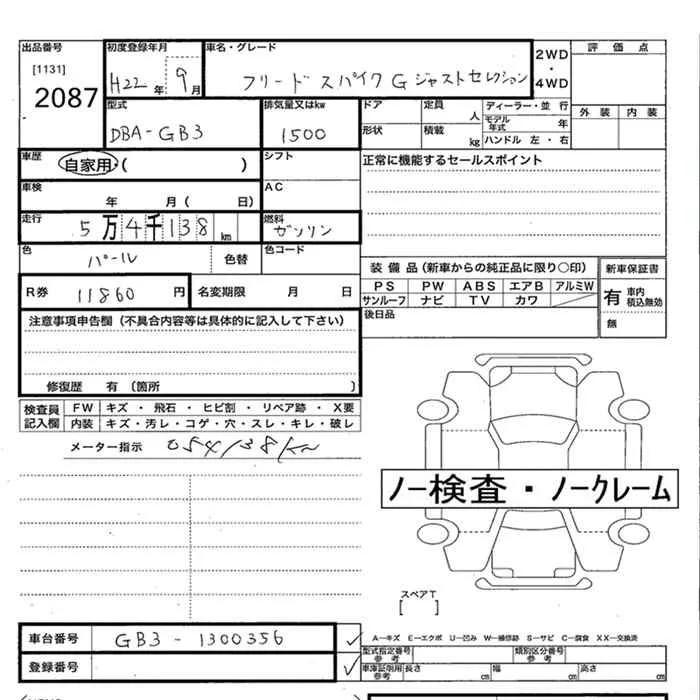 出品番号 初度登録年月 車名・グレード 2WD・4WD 評価点
[1131] H22年 9月 フリード スパイク G ジャストセレクション
2087
型式 排気量又はkw ドア 定員 人 ディーラー・並 行 外装 内装
DBA-GB3 1500 形状 積載 kg モデル年式 年
ハンドル 左・右
車歴 自家用・( ) シフト 正常に機能するセールスポイント
車検 年 月( 日) AC
走行 5万4千138km 燃料 ガソリン
色 パール 色替 色コード 装備品(新車からの純正品に限り○印) 新車保証書
PS PW ABS エアB アルミW 有 車内積込無効
R券 11860円 名変期限 月 日 サンルーフ ナビ TV カワ
後日品 無
注意事項申告欄(不具合内容等は具体的に記入して下さい)
修復歴 有(箇所 )
検査員記入欄 FW キズ・飛石・ヒビ割・リペア跡・X要
内装 キズ・汚レ・コゲ・穴・スレ・キレ・破レ
メーター指示 054138km
ノー検査・ノークレーム
スペアT
[ ]
車台番号 GB3-1300356 A-キズ E-エクボ U-凹み W-補修跡 S-サビ C-腐食 XX-交換済
型式指定番号参考 類別区分番号参考
登録番号 車庫証明用参考 長さ cm 幅 cm 高さ cm